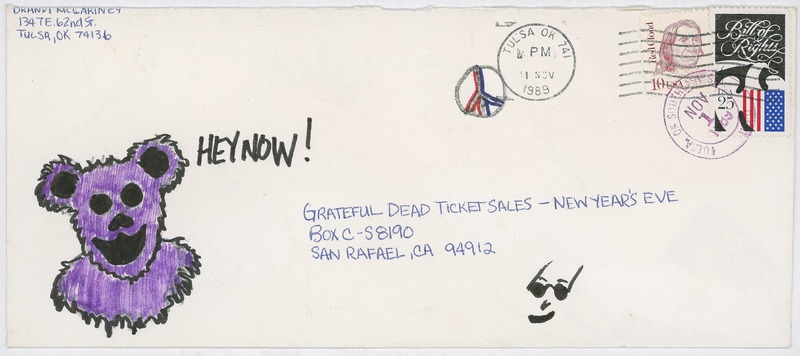 BRANDI McCARINEY
1347 E. 62nd St.
TULSA, OK 74136
TULSA OK 741
PM
11 NOV
1989
Red Cloud
10 USA
Bill of Rights
25
TULSA, OK
NOV
1
HEY NOW!
GRATEFUL DEAD TICKET SALES – NEW YEAR'S EVE
BOX C-S8190
SAN RAFAEL, CA 94912